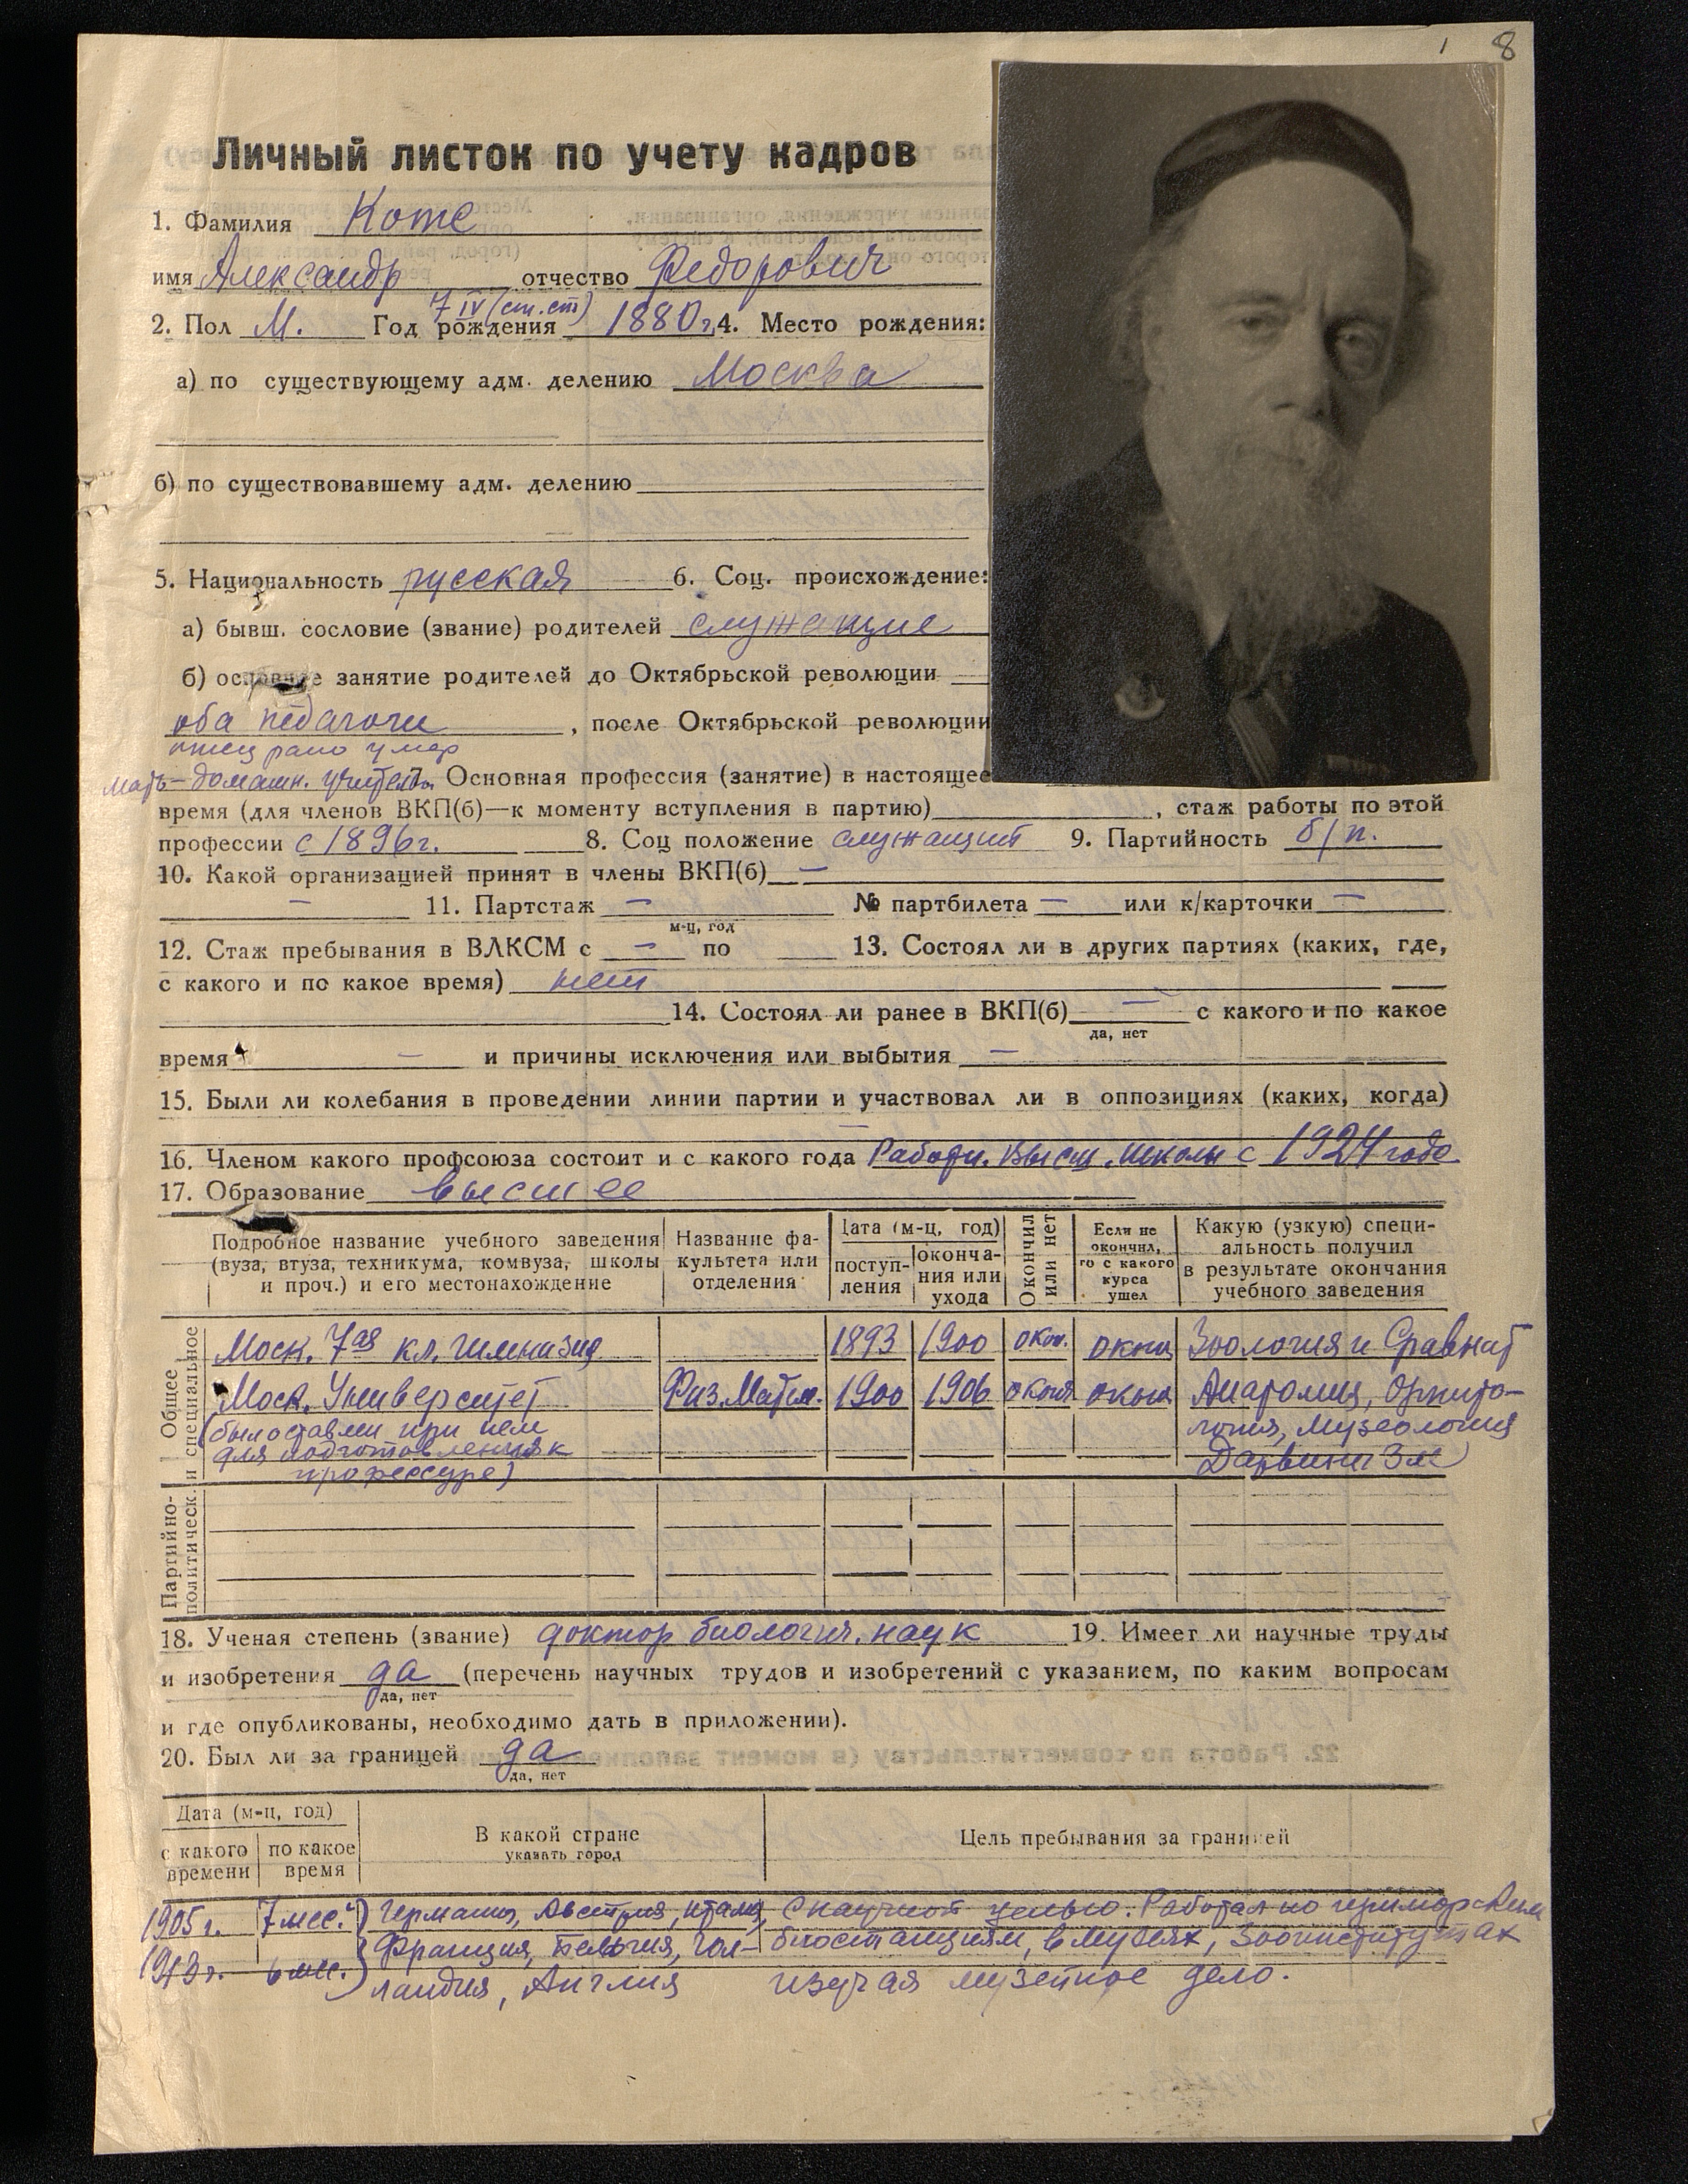 8
Личный листок по учету кадров
1. Фамилия Котс
имя Александр отчество Федорович
7 IV (ст. ст)
2. Пол М. Год рождения 1880 г. 4. Место рождения:
а) по существующему адм. делению Москва
б) по существовавшему адм. делению
5. Национальность русская 6. Соц. происхождение:
а) бывш. сословие (звание) родителей служащие
б) основное занятие родителей до Октябрьской революции
оба педагоги, после Октябрьской революции
отец рано умер
мать – домашн. учительн. Основная профессия (занятие) в настоящее
время (для членов ВКП(б)—к моменту вступления в партию) , стаж работы по этой
профессии с 1896 г. 8. Соц положение служащий 9. Партийность б/п.
10. Какой организацией принят в члены ВКП(б) —
— 11. Партстаж — № партбилета — или к/карточки —
м-ц, год
12. Стаж пребывания в ВЛКСМ с — по 13. Состоял ли в других партиях (каких, где,
с какого и по какое время) нет
14. Состоял ли ранее в ВКП(б) — с какого и по какое
да, нет
время — и причины исключения или выбытия —
15. Были ли колебания в проведении линии партии и участвовал ли в оппозициях (каких, когда)
—
16. Членом какого профсоюза состоит и с какого года Работн. Высш. Школы с 1924 года
17. Образование высшее
Подробное название учебного заведения (вуза, втуза, техникума, комвуза, школы и проч.) и его местонахождение
Название факультета или отделения
Дата (м-ц, год)
поступления
окончания или ухода
Окончил или нет
Если не окончил, то с какого курса ушел
Какую (узкую) специальность получил в результате окончания учебного заведения
Общее и специальное
Моск. 7ая кл. гимназия 1893 1900 окон. оконч Зоология и Сравнит
Моск. Университет Физ. Матем. 1900 1906 оконч оконч Анатомия, орнито-
(был оставлен при нем логия, Музеология
для подготовления к Дарвинизм
профессуре)
Партийно-политическ.
18. Ученая степень (звание) доктор биологич. наук 19. Имеет ли научные труды
и изобретения да (перечень научных трудов и изобретений с указанием, по каким вопросам
да, нет
и где опубликованы, необходимо дать в приложении).
20. Был ли за границей да
да, нет
Дата (м-ц, год)
с какого времени
по какое время
В какой стране
указать город
Цель пребывания за границей
1905 г. 7 мес. Германия, Австрия, Италия, С научной целью. Работал по приморским
1913 г. 6 мес. Франция, Бельгия, Гол- биостанциям, в Музеях, Зооинститутах
ландия, Англия изучая музейное дело.